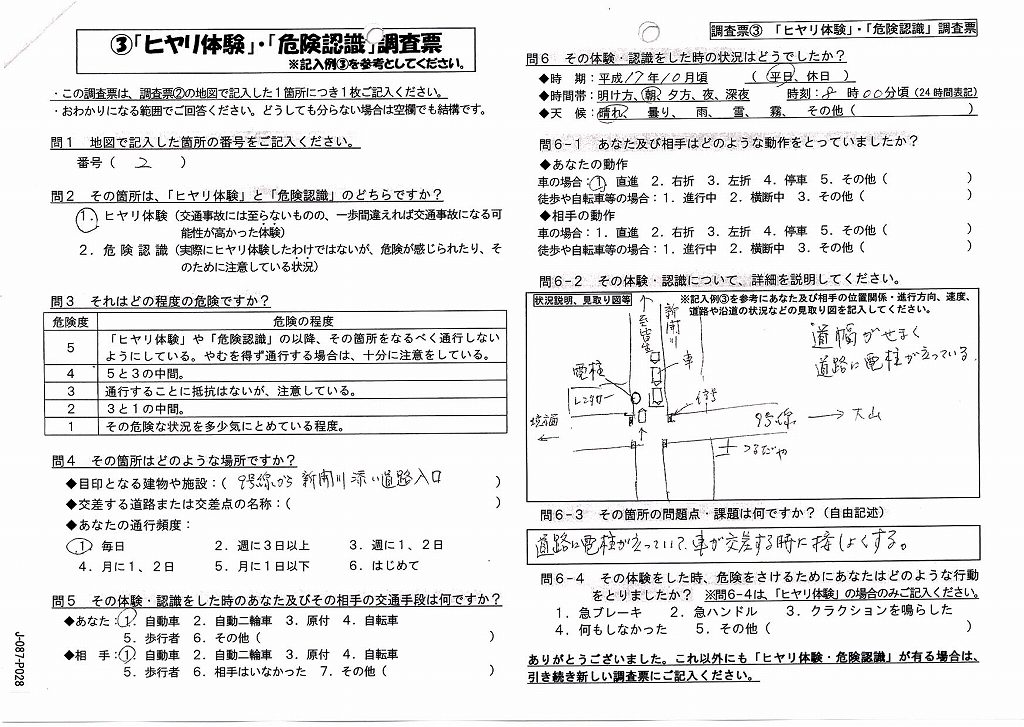 ③「ヒヤリ体験」・「危険認識」調査票
※記入例③を参考としてください。
・この調査票は、調査票②の地図で記入した1箇所につき1枚ご記入ください。
・おわかりになる範囲でご回答ください。どうしても分らない場合は空欄でも結構です。
問1 地図で記入した箇所の番号をご記入ください。
番号( 2 )
問2 その箇所は、「ヒヤリ体験」と「危険認識」のどちらですか?
1．ヒヤリ体験(交通事故には至らないものの、一歩間違えれば交通事故になる可
能性が高かった体験)
2．危険認識(実際にヒヤリ体験したわけではないが、危険が感じられたり、そ
のために注意している状況)
問3 それはどの程度の危険ですか?
危険度 危険の程度
5 「ヒヤリ体験」や「危険認識」の以降、その箇所をなるべく通行しない
ようにしている。やむを得ず通行する場合は、十分に注意をしている。
4 5と3の中間。
3 通行することに抵抗はないが、注意している。
2 3と1の中間。
1 その危険な状況を多少気にとめている程度。
問4 その箇所はどのような場所ですか?
◆目印となる建物や施設:( 9号線から 新開川添い道路入口 )
◆交差する道路または交差点の名称:( )
◆あなたの通行頻度:
1．毎日 2．週に3日以上 3．週に1、2日
4．月に1、2日 5．月に1日以下 6．はじめて
問5 その体験・認識をした時のあなた及びその相手の交通手段は何ですか?
◆あなた:1．自動車 2．自動二輪車 3．原付 4．自転車
5．歩行者 6．その他( )
◆相 手:1．自動車 2．自動二輪車 3．原付 4．自転車
5．歩行者 6．相手はいなかった 7．その他( )
J-087-P028
調査票③ 「ヒヤリ体験」・「危険認識」調査票
問6 その体験・認識をした時の状況はどうでしたか?
◆時 期:平成17年10月頃 (平日、休日)
◆時間帯:明け方、朝、夕方、夜、深夜 時刻:8 時00分頃(24時間表記)
◆天 候:晴れ、 曇り、 雨、 雪、 霧、 その他( )
問6-1 あなた及び相手はどのような動作をとっていましたか?
◆あなたの動作
車の場合:1．直進 2．右折 3．左折 4．停車 5．その他( )
徒歩や自転車等の場合:1．進行中 2．横断中 3．その他( )
◆相手の動作
車の場合:1．直進 2．右折 3．左折 4．停車 5．その他( )
徒歩や自転車等の場合:1．進行中 2．横断中 3．その他( )
問6-2 その体験・認識について、詳細を説明してください。
状況説明、見取り図等
※記入例③を参考にあなた及び相手の位置関係・進行方向、速度、
道路や沿道の状況などの見取り図を記入してください。
至皆生
新開川
道幅がせまく
道路に電柱が立っている。
電柱
車
レンタカー
信号
境
9号線 → 大山
つるだや
問6-3 その箇所の問題点・課題は何ですか?(自由記述)
道路に電柱が立っていて、車が交差する時に接しょくする。
問6-4 その体験をした時、危険をさけるためにあなたはどのような行動
をとりましたか? ※問6-4は、「ヒヤリ体験」の場合のみご記入ください。
1．急ブレーキ 2．急ハンドル 3．クラクションを鳴らした
4．何もしなかった 5．その他( )
ありがとうございました。これ以外にも「ヒヤリ体験・危険認識」が有る場合は、
引き続き新しい調査票にご記入ください。